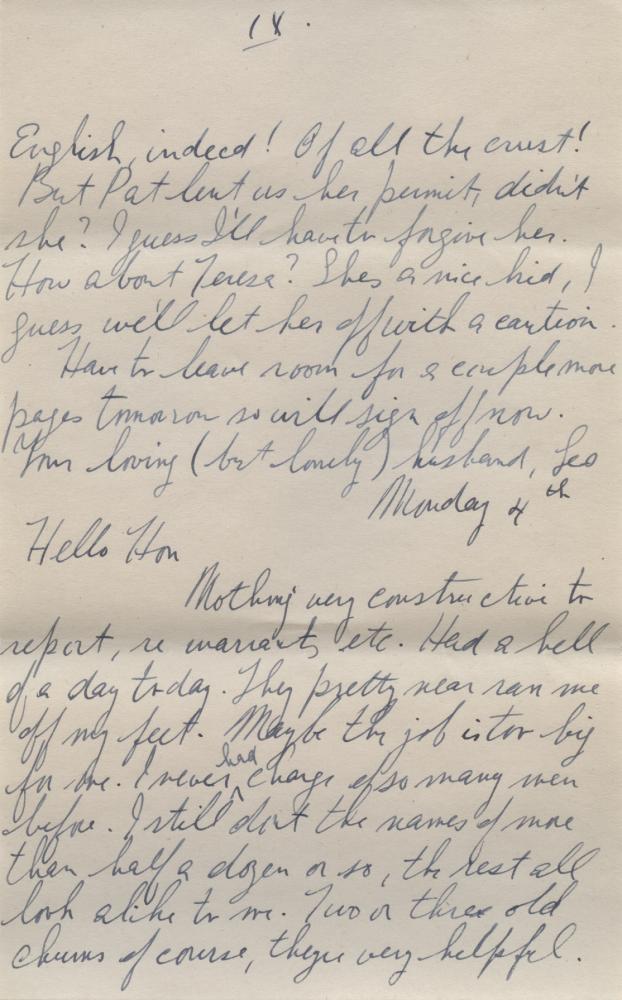 18.
English, indeed! Of all the crust!
But Pat lent us her permit, didn't
she? I guess I'll have to forgive her.
How about Teresa? She's a nice kid, I
guess we'll let her off with a caution.
Have to leave room for a couple more
pages tomorrow so will sign off now.
Your loving (but lonely) husband, Leo
Monday 4th
Hello Hon
Nothing very constructive to
report, re warrants etc. Had a hell
of a day today. They pretty near ran me
off my feet. Maybe the job is too big
for me. I never had charge of so many men
before. I still don't the names of more
than half a dozen or so, the rest all
look alike to me. Two or three old
chums of course, they're very helpful.